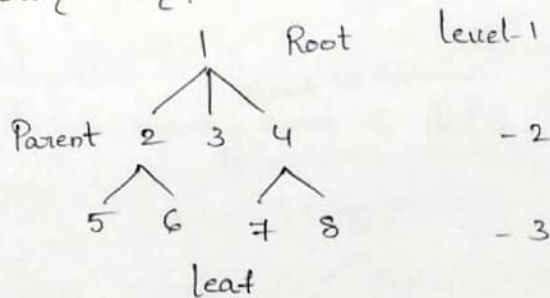 1 Root level-1
Parent 2 3 4 - 2
5 6 7 8 - 3
leaf